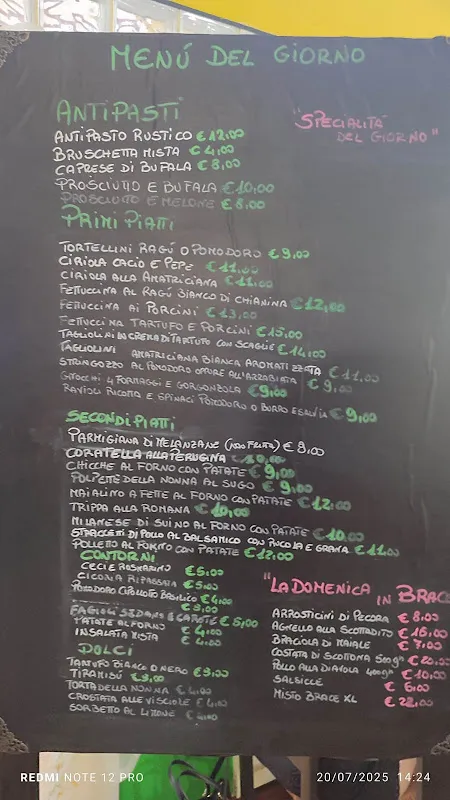 MENÚ DEL GIORNO
ANTIPASTI
"SPECIALITÀ
DEL GIORNO"
ANTIPASTO RUSTICO € 12,00
BRUSCHETTA MISTA € 4,00
CAPRESE DI BUFALA € 8,00
PROSCIUTTO E BUFALA € 10,00
PROSCIUTTO E MELONE € 8,00
PRIMI PIATTI
TORTELLINI RAGÚ O POMODORO € 9,00
CIRIOLA CACIO E PEPE € 11,00
CIRIOLA ALLA AMATRICIANA € 11,00
FETTUCCINA AL RAGÚ BIANCO DI CHIANINA € 12,00
FETTUCCINA AI PORCINI € 13,00
FETTUCCINA TARTUFO E PORCINI € 15,00
TAGLIOLINI IN CREMA DI TARTUFO CON SCAGLIE € 14,00
TAGLIOLINI AMATRICIANA BIANCA AROMATIZZATA € 11,00
STRINGOZZO AL POMODORO OPPURE ALL'ARRABIATA € 9,00
GNOCCHI 4 FORMAGGI E GORGONZOLA € 9,00
RAVIOLI RICOTTA E SPINACI POMODORO O BURRO E SALVIA € 9,00
SECONDI PIATTI
PARMIGIANA DI MELANZANE (NON FRITTA) € 9,00
CORATELLA ALLA PERUGINA € 10,00
CHICCHE AL FORNO CON PATATE € 9,00
POLPETTE DELLA NONNA AL SUGO € 9,00
MAIALINO A FETTE AL FORNO CON PATATE € 12,00
TRIPPA ALLA ROMANA € 10,00
MILANESE DI SUINO AL FORNO CON PATATE € 10,00
STRACCETTI DI POLLO AL BALSAMICO CON RUCOLA E GRANA € 11,00
POLLETTO AL FORNO CON PATATE € 12,00
CONTORNI
CECI E ROSMARINO € 5,00
CICORIA RIPASSATA € 5,00
POMODORO CIPOLLOTTO BASILICO € 4,00
€ 5,00
FAGIOLI SEDANO E CAROTE € 5,00
PATATE AL FORNO € 4,00
INSALATA MISTA € 4,00
DOLCI
TARTUFO BIANCO O NERO € 9,00
TIRAMISÚ € 9,00
TORTA DELLA NONNA € 4,00
CROSTATA ALLE VISCIOLE € 4,00
SORBETTO AL LIMONE € 4,00
"LA DOMENICA IN BRACE
ARROSTICINI DI PECORA € 8,00
AGNELLO ALLA SCOTTADITO € 15,00
BRACIOLA DI MAIALE € 7,00
COSTATA DI SCOTTONA 500gr € 20,00
POLLO ALLA DIAVOLA 400gr € 10,00
SALSICCE € 6,00
MISTO BRACE XL € 22,00
REDMI NOTE 12 PRO
20/07/2025 14:24